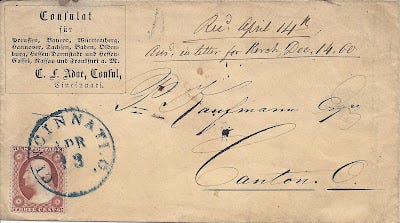 Consulat
für
Preußen, Bayern, Württemberg,
Hannover, Sachsen, Baden, Olden-
burg, Hessen-Darmstadt und Hessen-
Cassel, Nassau und Frankfurt a. M.
C. F. Adae, Consul,
Cincinnati.
Rec. April 14th
Ans. in letter for Dec. 14. 60
P. Kaufmann Esqr
Canton. O.
CINCINNATI O.
APR
13
U.S. POSTAGE
THREE CENTS